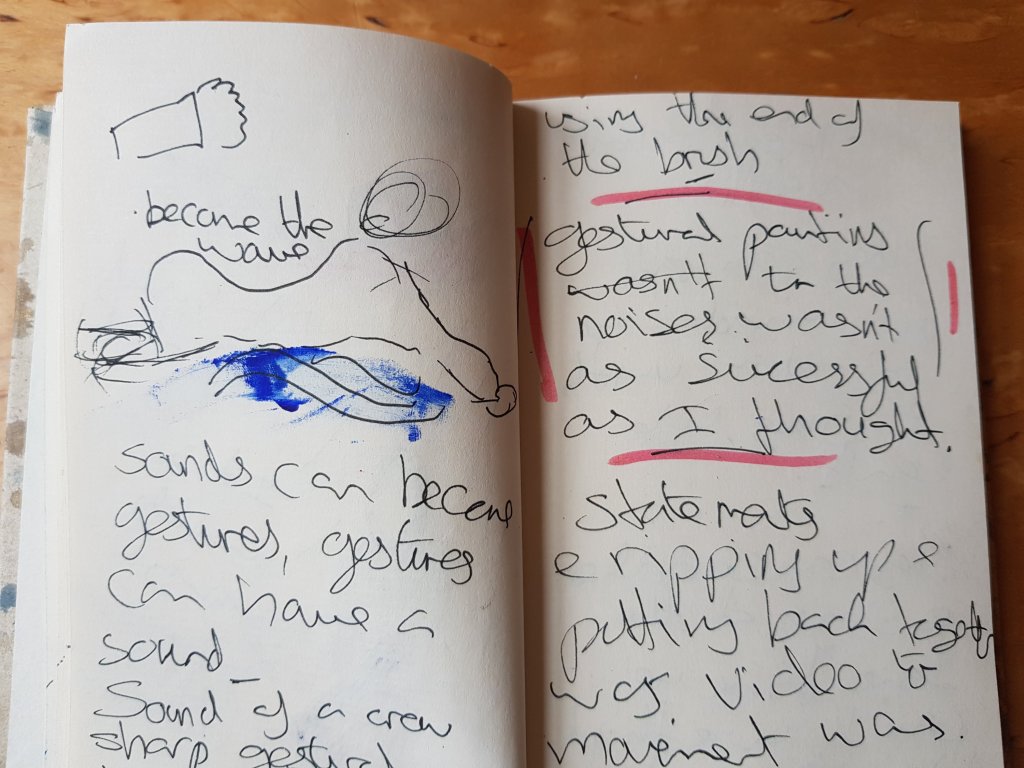 become the
wave
sounds can become
gestures, gestures
can have a
sound
Sound of a crow
sharp gestural
using the end of
the brush
gestural painting
wasn't to the
noises wasn't
as sucessful
as I thought.
statements
ripping up &
putting back
was. video
movement was.